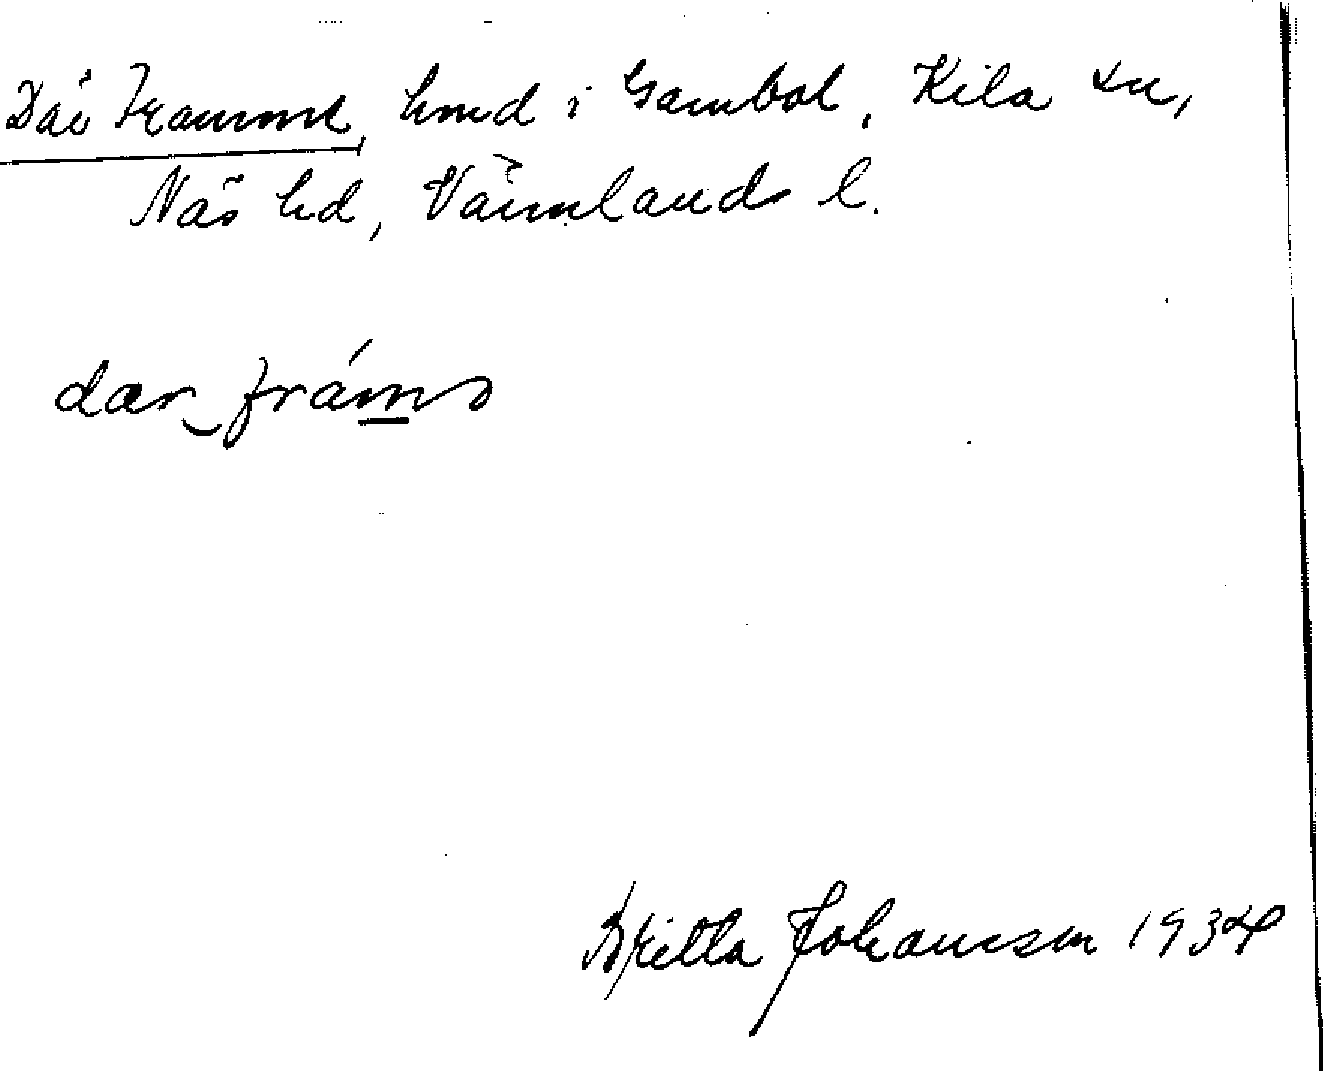 Där Framme, hmd i Gambol, Kila sn,
Näs hd, Värmlands l.
dær fráms
Britta Johansson 1934